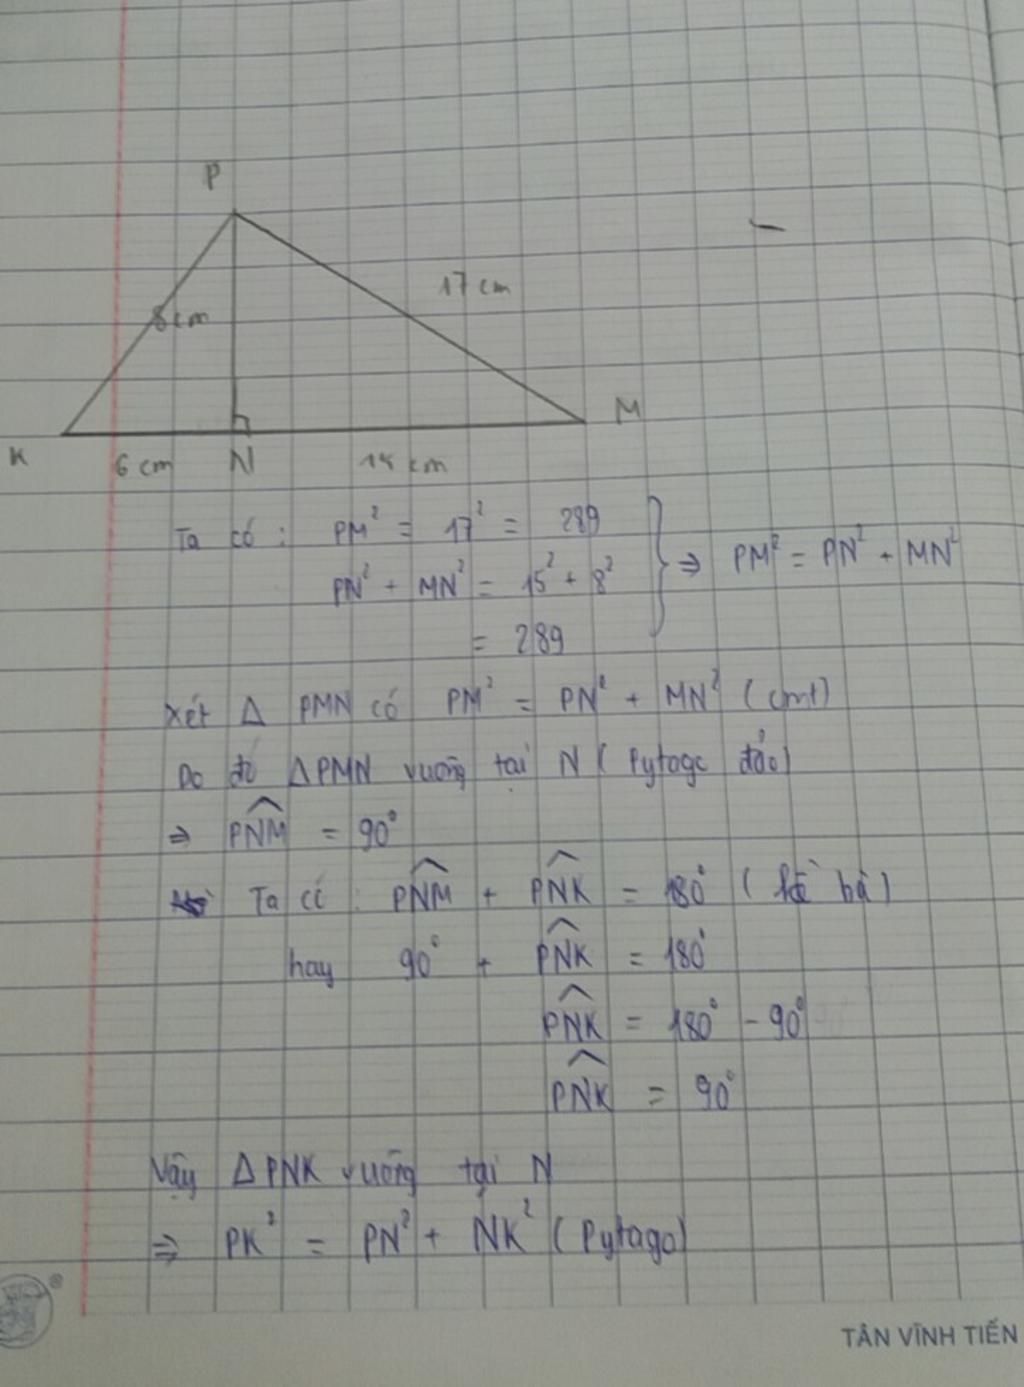 P
17 cm
8 cm
M
K
6 cm
N
15 cm
Ta có : PM² = 17² = 289
PN² + MN² = 15² + 8²
= 289
⇒ PM² = PN² + MN²
Xét Δ PMN có PM² = PN² + MN² (cmt)
Do đó ΔPMN vuông tại N ( Pytago đảo)
⇒ PNM = 90°
Ta có : PNM + PNK = 180° ( kề bù)
hay 90° + PNK = 180°
PNK = 180° - 90°
PNK = 90°
Vậy Δ PNK vuông tại N
⇒ PK² = PN² + NK² ( Pytago)
TÂN VĨNH TIẾN